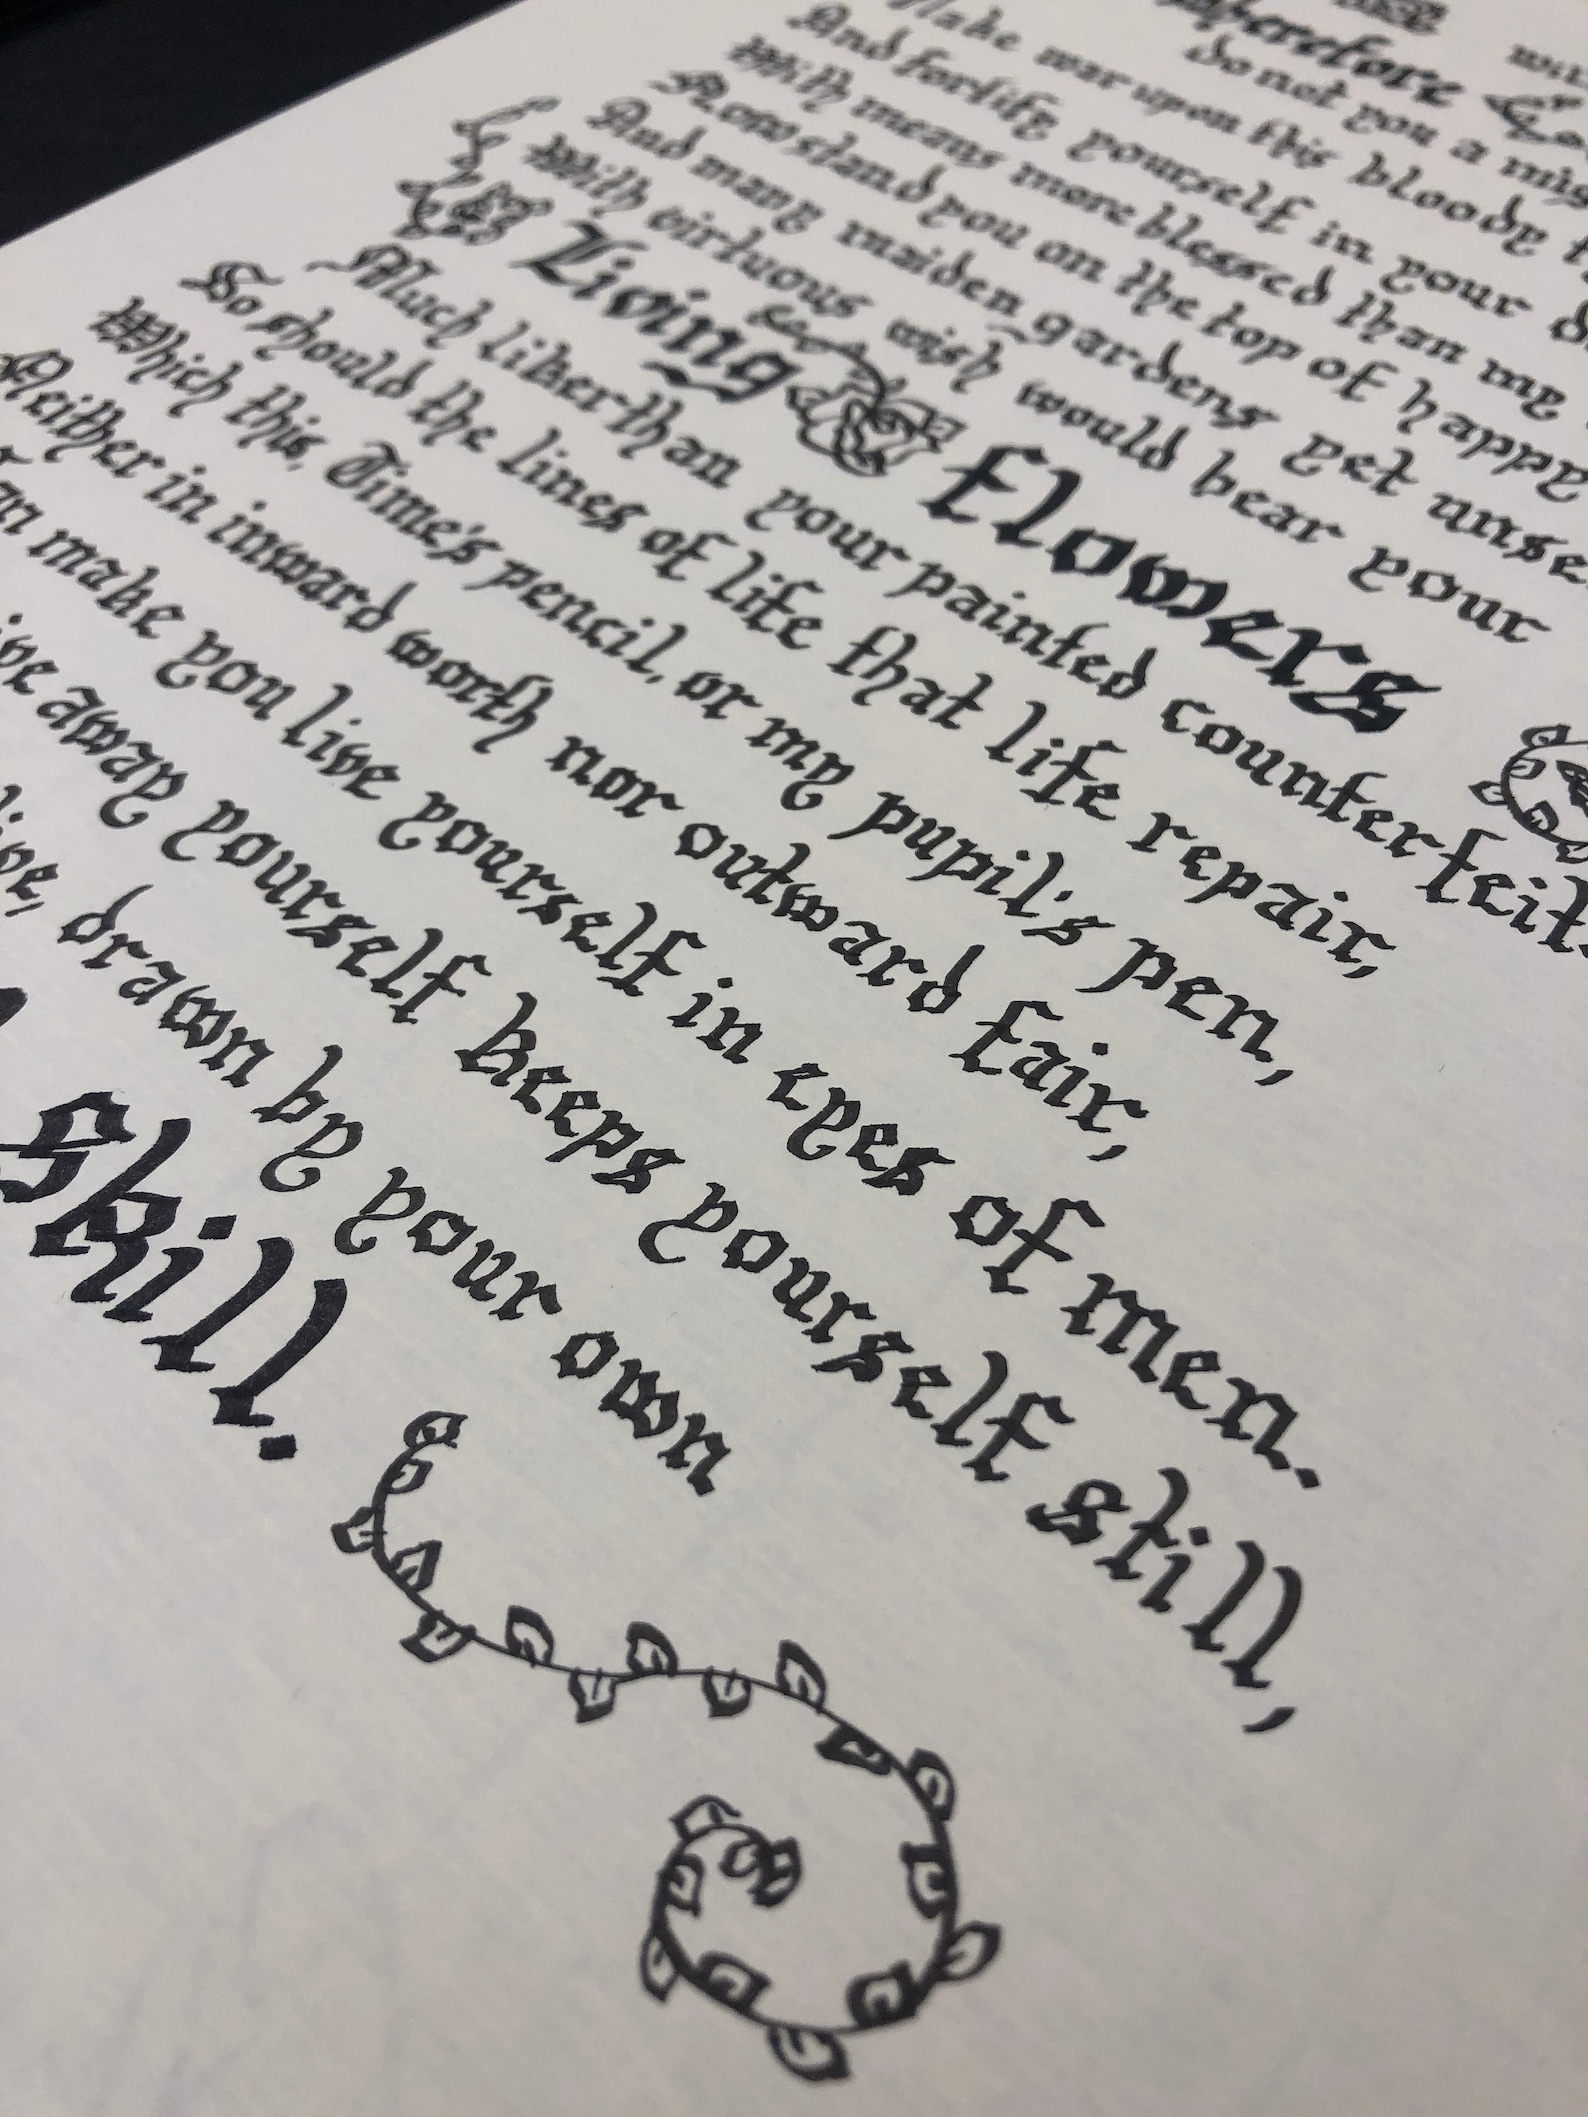 herefore
do not you a mig
Make war upon this bloody t
And fortify yourself in your d
With means more blessed than my
Now stand you on the top of happy
And many maiden gardens yet unse
With virtuous wish would bear your
Living Flowers
Much liker than your painted counterfeit
So should the lines of life that life repair,
Which this, Time's pencil, or my pupil's pen,
Neither in inward worth nor outward fair,
an make you live yourself in eyes of men.
ive away yourself keeps yourself still,
live, drawn by your own
skill.